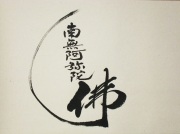 南無阿弥陀
佛